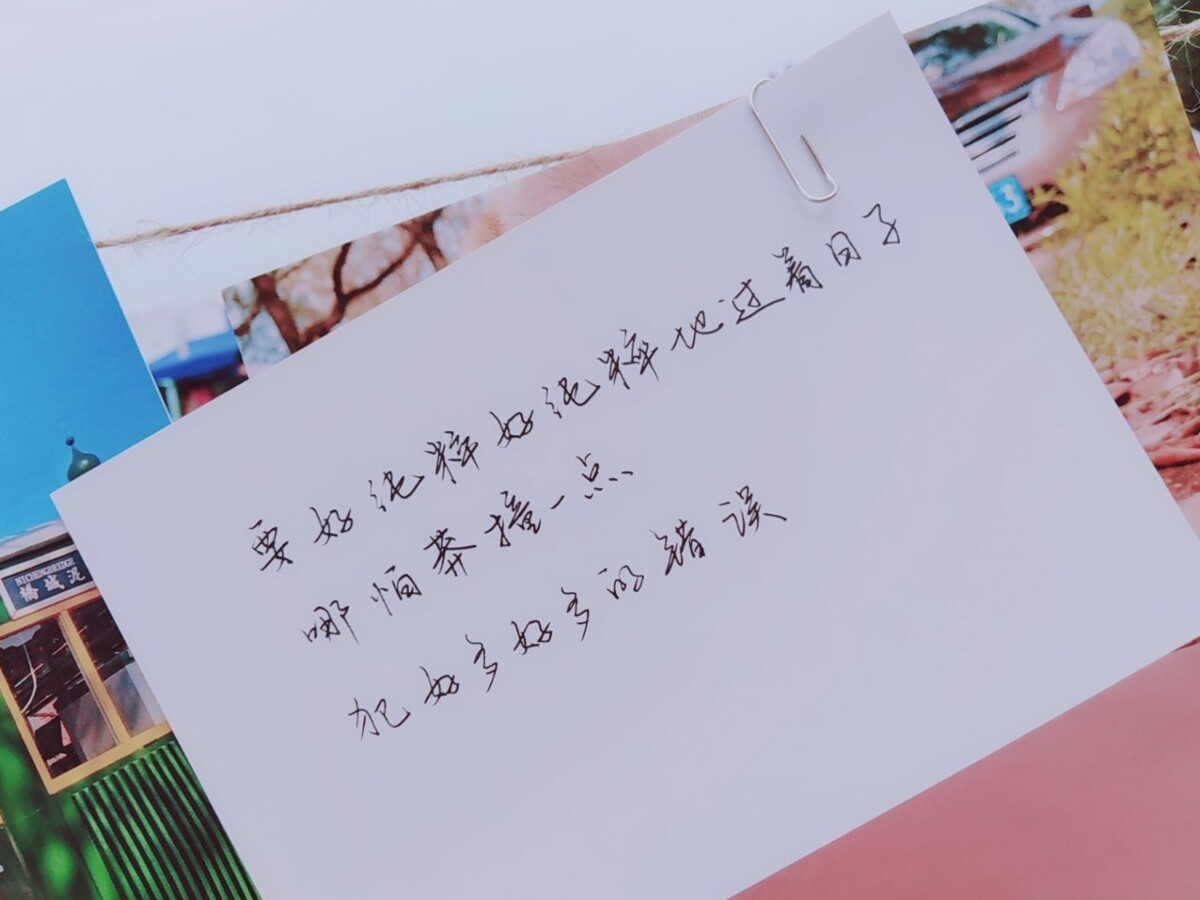 要好纯粹好纯粹地过着日子
哪怕莽撞一点
犯好多好多的错误
NICHENGBRIDGE
橋城泥
3